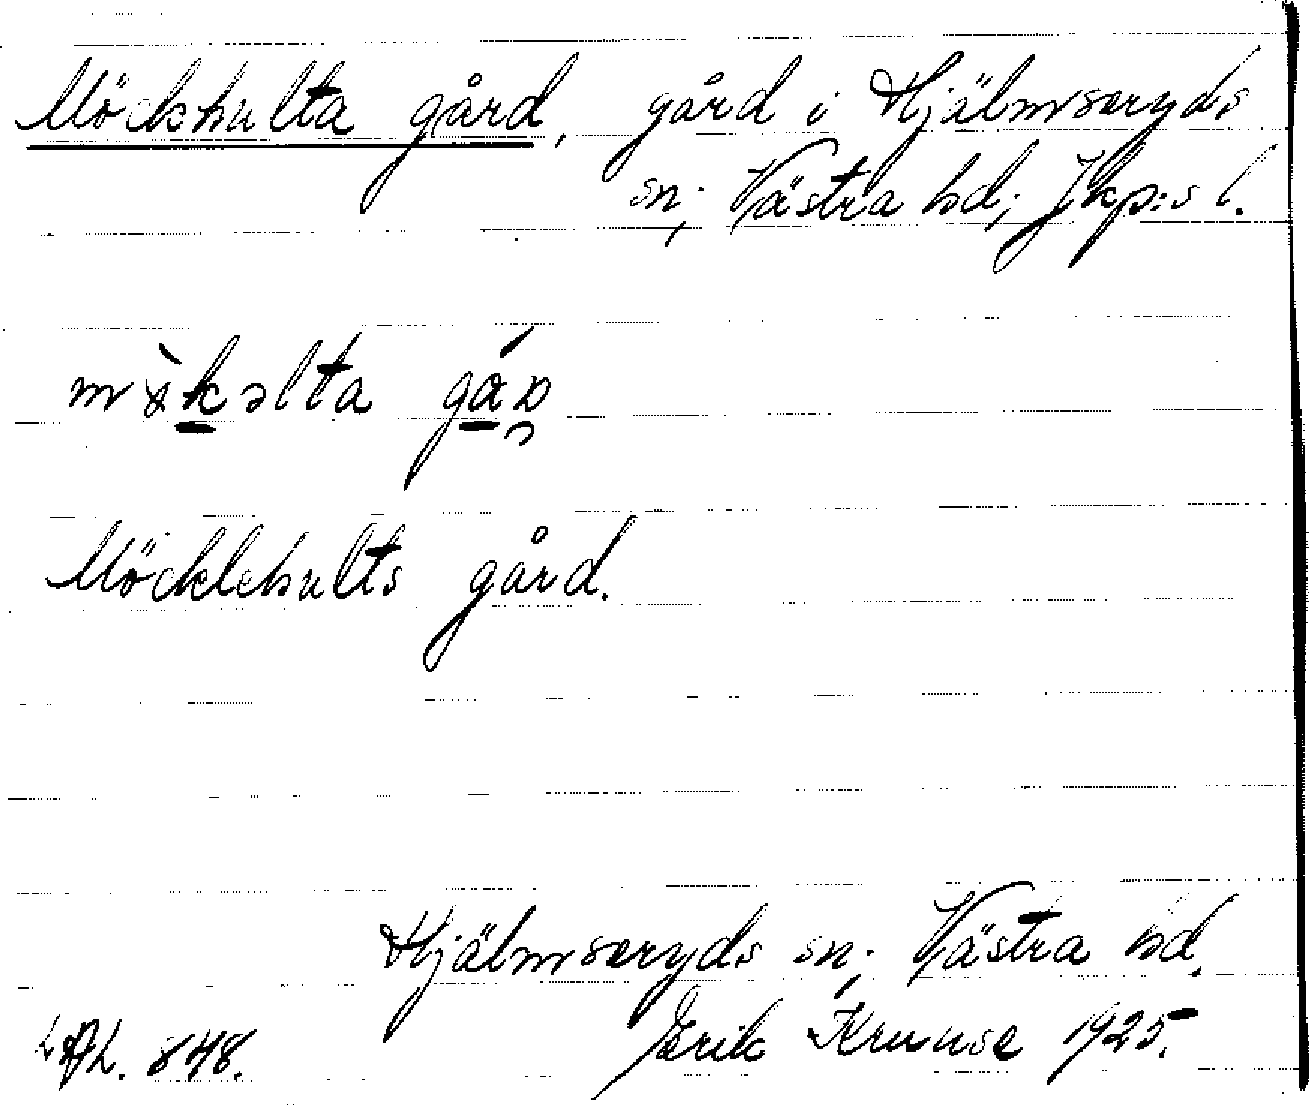 Möckhulta gård, gård i Hjälmseryds
sn; Västra hd; Jkp:s l.
mø̀kəlta gáɷ
Möcklehults gård.
Hjälmseryds sn; Västra hd.
848. Erik Kruuse 1925.